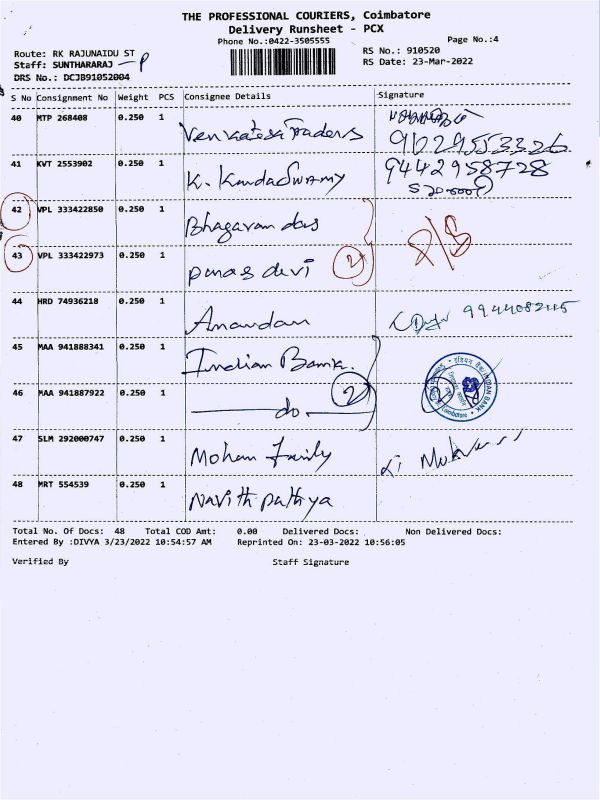 THE PROFESSIONAL COURIERS, Coimbatore
Delivery Runsheet - PCX
Phone No.:0422-3505555
Page No.:4
Route: RK RAJUNAIDU ST
RS No.: 910520
Staff: SUNTHARARAJ - P
RS Date: 23-Mar-2022
DRS No.: DCJB91052004
S No Consignment No Weight PCS Consignee Details Signature
40 MTP 268408 0.250 1 Venkatesh Traders
9029553326
41 KVT 2553902 0.250 1 K. KandaSwamy 9442958728
42 VPL 333422850 0.250 1 Bhagavan das
43 VPL 333422973 0.250 1 panas devi 2 P/S
44 HRD 74936218 0.250 1 Anandan 9944082115
45 MAA 941888341 0.250 1 Indian Bank.
46 MAA 941887922 0.250 1 do 2 INDIAN BANK Coimbatore
47 SLM 292000747 0.250 1 Mohan Family
48 MRT 554539 0.250 1 Navith pathya
Total No. Of Docs: 48 Total COD Amt: 0.00 Delivered Docs: Non Delivered Docs:
Entered By :DIVYA 3/23/2022 10:54:57 AM Reprinted On: 23-03-2022 10:56:05
Verified By Staff Signature